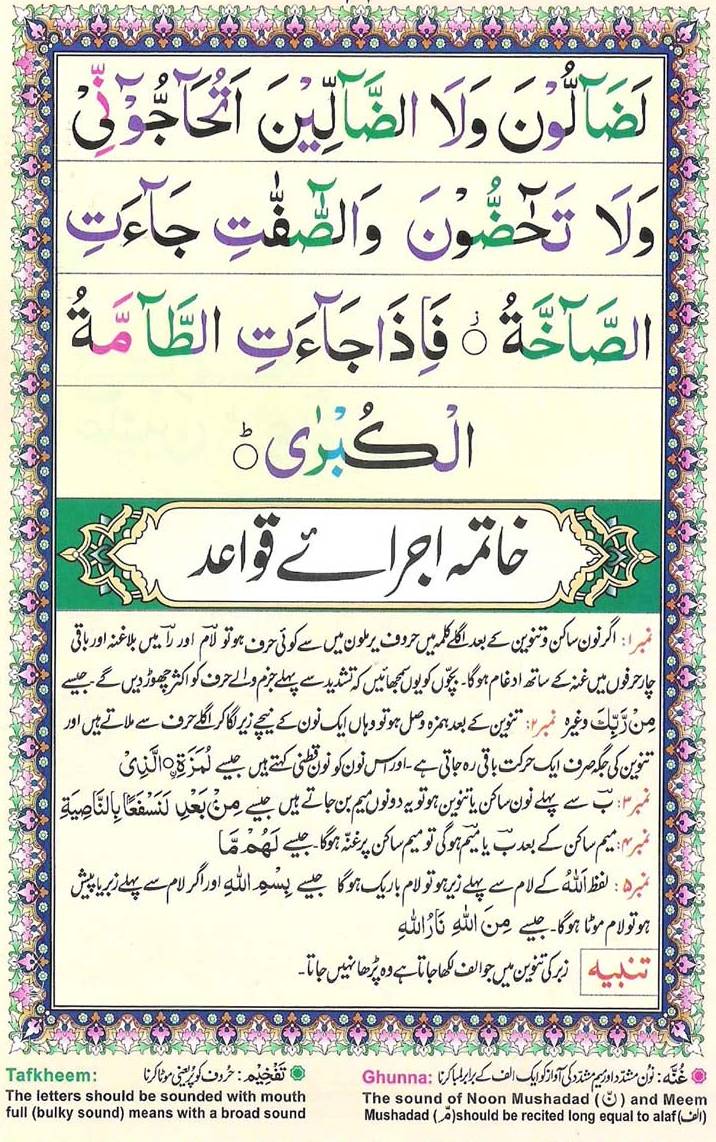 لَضَآلُّوْنَ وَلَا الضَّآلِّيْنَ اَتُحَآجُّوْٓنِّيْ
وَلَا تَحٰٓضُّوْنَ وَالصّٰٓفّٰتِ جَآءَتِ
الصَّآخَّةُ ۝ز فَاِذَا جَآءَتِ الطَّآمَّةُ
الْكُبْرٰى ۝ط
خاتمہ اجرائے قواعد
نمبر۱: اگر نون ساکن و تنوین کے بعد اگلے کلمہ میں حروف یرملون میں سے کوئی حرف ہو تو لام اور را میں بلا غنہ اور باقی
چار حرفوں میں غنہ کے ساتھ ادغام ہوگا۔ بچّوں کو یوں سمجھائیں کہ تشدید سے پہلے جزم والے حرف کو اکثر چھوڑ دیں گے۔ جیسے
مِنْ رَّبِّكَ وغیرہ نمبر۲: تنوین کے بعد ہمزہ وصل ہو تو وہاں ایک نون کے نیچے زیر لگا کر اگلے حرف سے ملاتے ہیں اور
تنوین کی جگہ صرف ایک حرکت باقی رہ جاتی ہے۔ اور اس نون کو نون قطنی کہتے ہیں جیسے لُمَزَةِ ۝ۨالَّذِىْ
نمبر۳: ب سے پہلے نون ساکن یا تنوین ہو تو یہ دونوں میم بن جاتے ہیں جیسے مِنْۢ بَعْدِ لَنَسْفَعًۢا بِالنَّاصِيَةِ
نمبر۴: میم ساکن کے بعد ب یا میم ہوگی تو میم ساکن پر غنّہ ہوگا۔ جیسے لَهُمْ مَّا
نمبر۵: لفظ اَللهُ کے لام سے پہلے زیر ہو تو لام باریک ہوگا جیسے بِسْمِ اللهِ اور اگر لام سے پہلے زبر یا پیش
ہو تو لام موٹا ہوگا۔ جیسے مِنَ اللهِ نَارُ اللهِ
تنبیہ زبر کی تنوین میں جو الف لکھا جاتا ہے وہ پڑھا نہیں جاتا۔
غُنَّه: نون مشدّد اور میم مشدّد کی آواز کو ایک الف کے برابر لمبا کرنا
Ghunna:
The sound of Noon Mushadad (نّ) and Meem
Mushadad (مّ) should be recited long equal to alaf (الف)
تَفْخِيْم: حروف کو پُر یعنی موٹا کرنا
Tafkheem:
The letters should be sounded with mouth
full (bulky sound) means with a broad sound